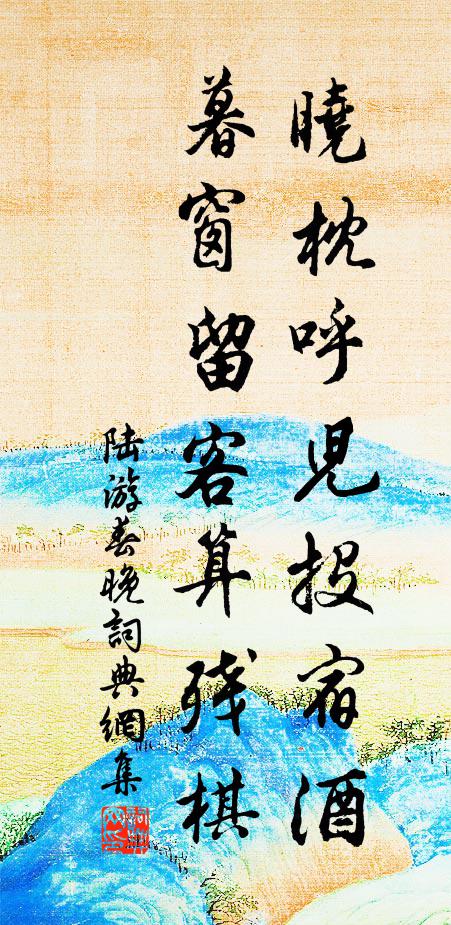 曉枕呼兒投宿酒
暮窗留客算殘棋
陆游春晚詞典網集